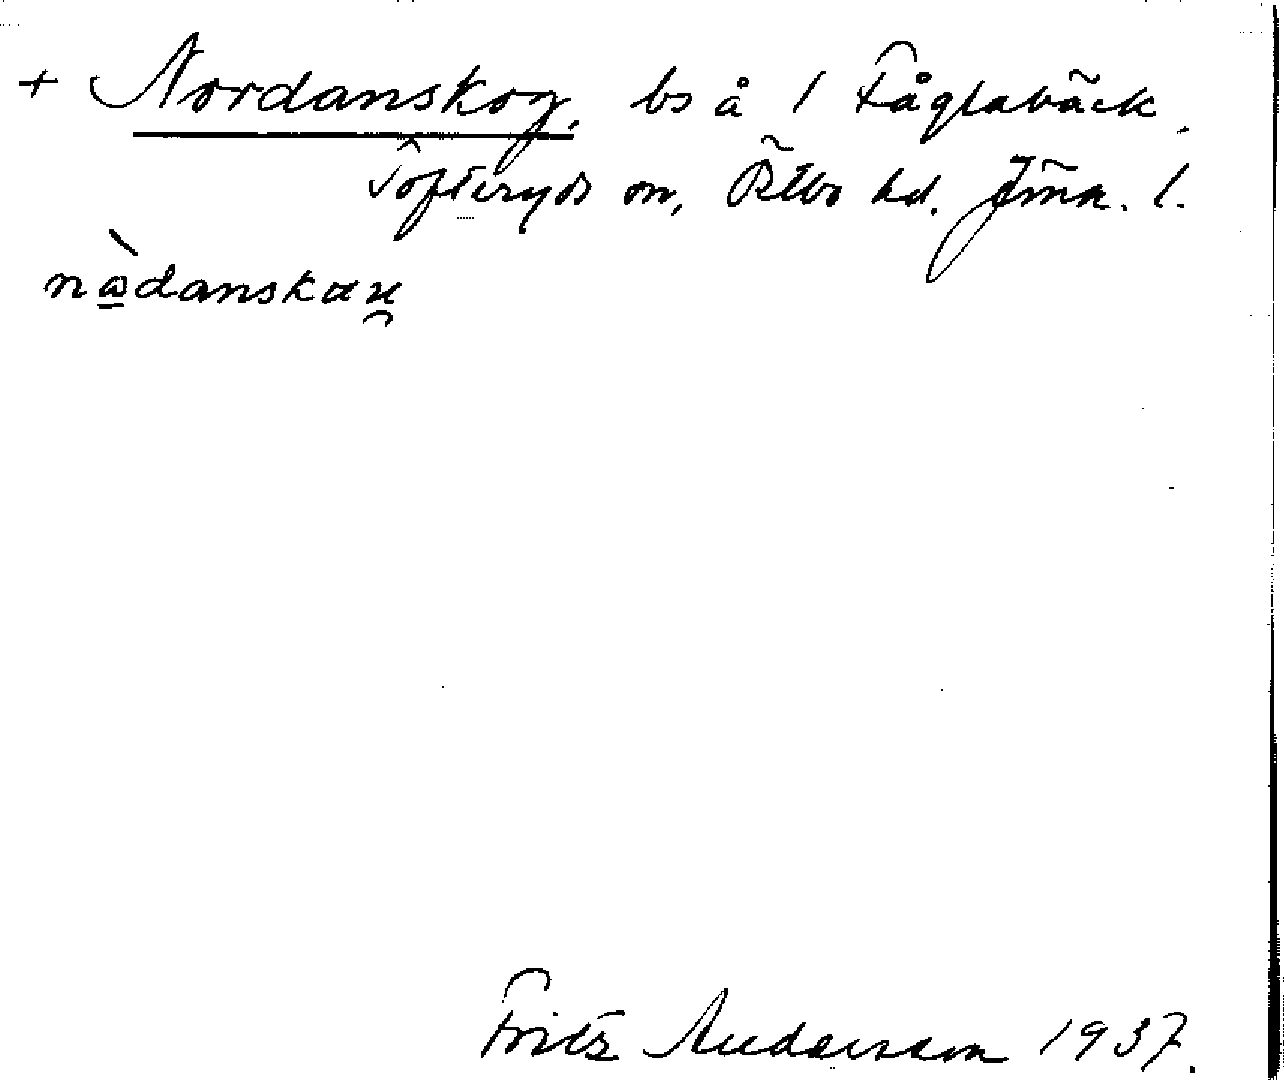 + Nordanskog, bs å 1 Fåglabäck,
Tofteryds sn, Östbo hd. Jönk. l.
nådanskau
Fritz Andersson 1937.